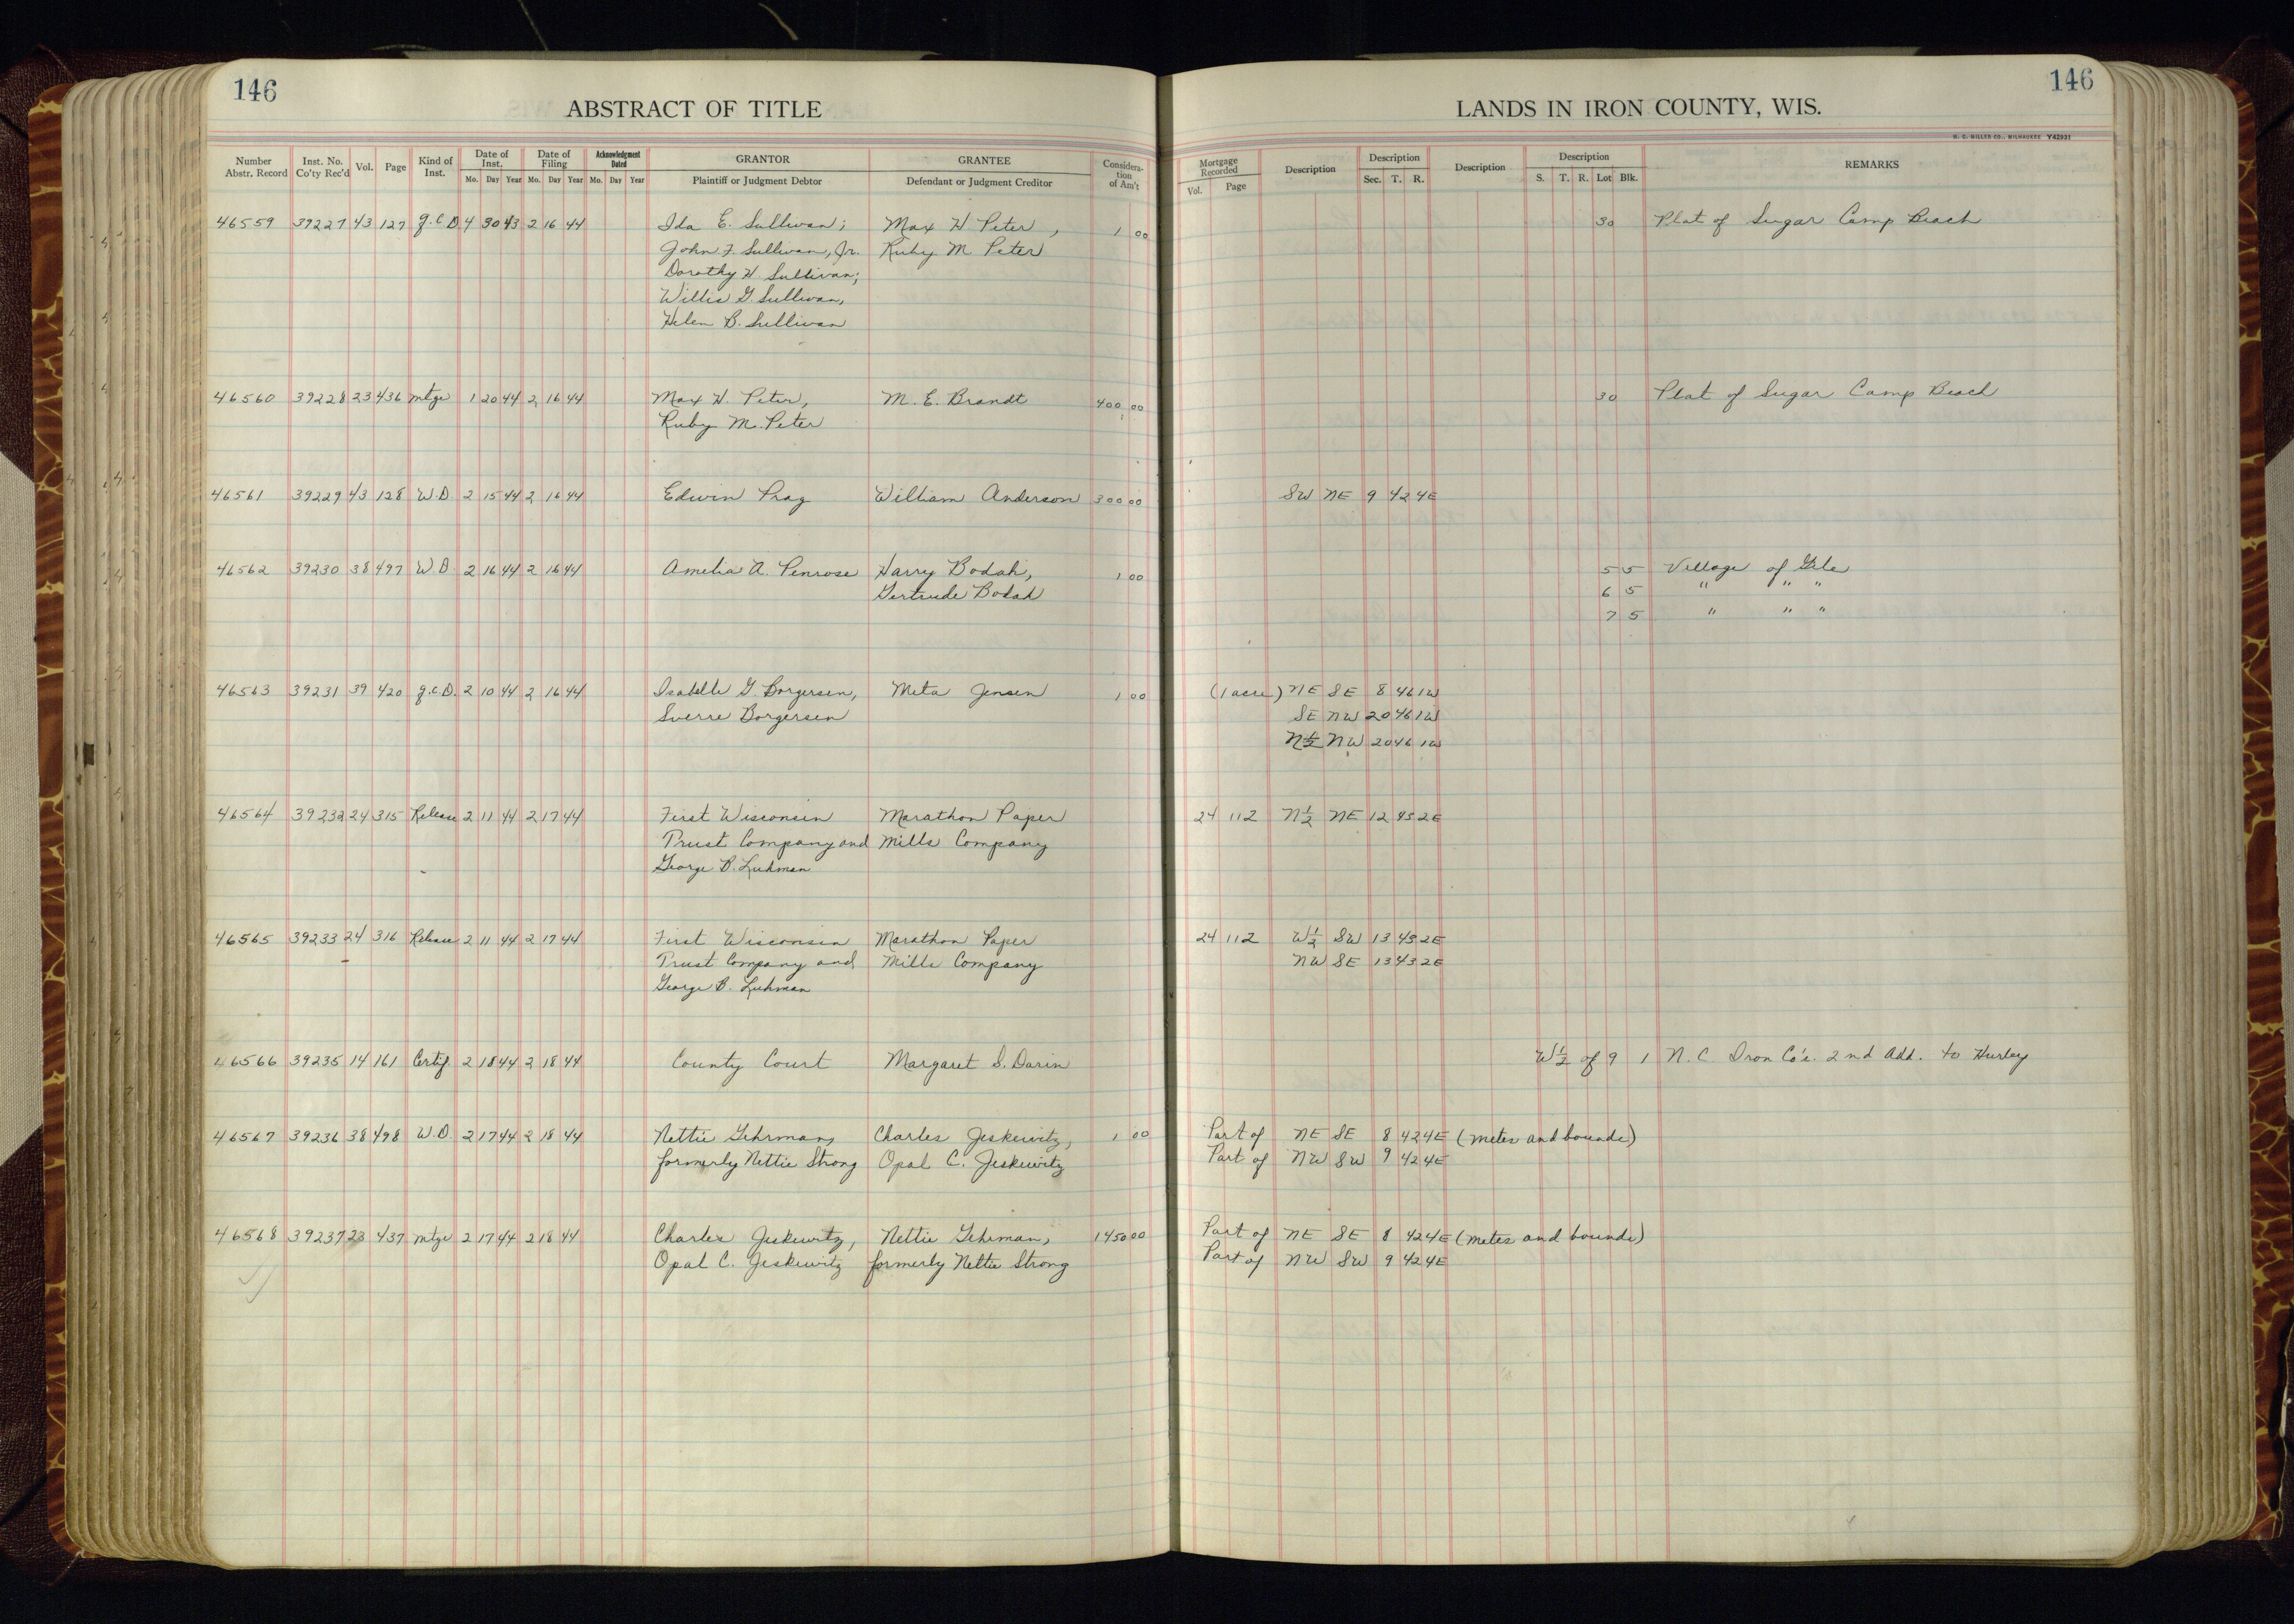 146
146
ABSTRACT OF TITLE
LANDS IN IRON COUNTY, WIS.
H. C. MILLER CO., MILWAUKEE Y42931
Number Abstr. Record Inst. No. Co'ty Rec'd Vol. Page Kind of Inst. Date of Inst. Mo. Day Year Date of Filing Mo. Day Year Acknowledgment Dated Mo. Day Year GRANTOR Plaintiff or Judgment Debtor GRANTEE Defendant or Judgment Creditor Considera-tion of Am't
Mortgage Recorded Vol. Page Description Description Sec. T. R. Description Description S. T. R. Lot Blk. REMARKS
46559 39227 43 127 q.c.D 4 30 43 2 16 44 Ida E. Sullivan; Max H Peter, 1 00 30 Plat of Sugar Camp Beach
John F. Sullivan, Jr. Ruby M. Peter
Dorothy H. Sullivan;
Willis G. Sullivan,
Helen B. Sullivan
46560 39228 23 436 mtge 1 20 44 2 16 44 Max H. Peter, M. E. Brandt 400 00 30 Plat of Sugar Camp Beach
Ruby M. Peter
46561 39229 43 128 W.D. 2 15 44 2 16 44 Edwin Prag William Anderson 300 00 SW NE 9 42 4E
46562 39230 38 497 W.D. 2 16 44 2 16 44 Amelia A. Penrose Harry Bodah, 1 00 5 5 Village of Gile
Gertrude Bodah 6 5 " " "
7 5 " " "
46563 39231 39 420 q.c.D. 2 10 44 2 16 44 Isabelle G. Borgersen, Meta Jensen 1 00 (1 acre) NE SE 8 46 1W
Sverre Borgersen SE NW 20 46 1W
N½ NW 20 46 1W
46564 39232 24 315 Release 2 11 44 2 17 44 First Wisconsin Marathon Paper 24 112 N½ NE 12 43 2E
Trust Company and Mills Company
George B. Luhman
46565 39233 24 316 Release 2 11 44 2 17 44 First Wisconsin Marathon Paper 24 112 W½ SW 13 43 2E
Trust Company and Mills Company NW SE 13 43 2E
George B. Luhman
46566 39235 14 161 Certif 2 18 44 2 18 44 County Court Margaret S. Darin W½ of 9 1 N. C. Iron Co's. 2nd Add. to Hurley
46567 39236 38 498 W.D. 2 17 44 2 18 44 Nettie Gehrman, Charles Jeskewitz, 1 00 Part of NE SE 8 42 4E (metes and bounds)
formerly Nettie Strong Opal C. Jeskewitz Part of NW SW 9 42 4E
46568 39237 23 437 mtge 2 17 44 2 18 44 Charles Jeskewitz, Nettie Gehrman, 1450 00 Part of NE SE 8 42 4E (metes and bounds)
Opal C. Jeskewitz formerly Nettie Strong Part of NW SW 9 42 4E